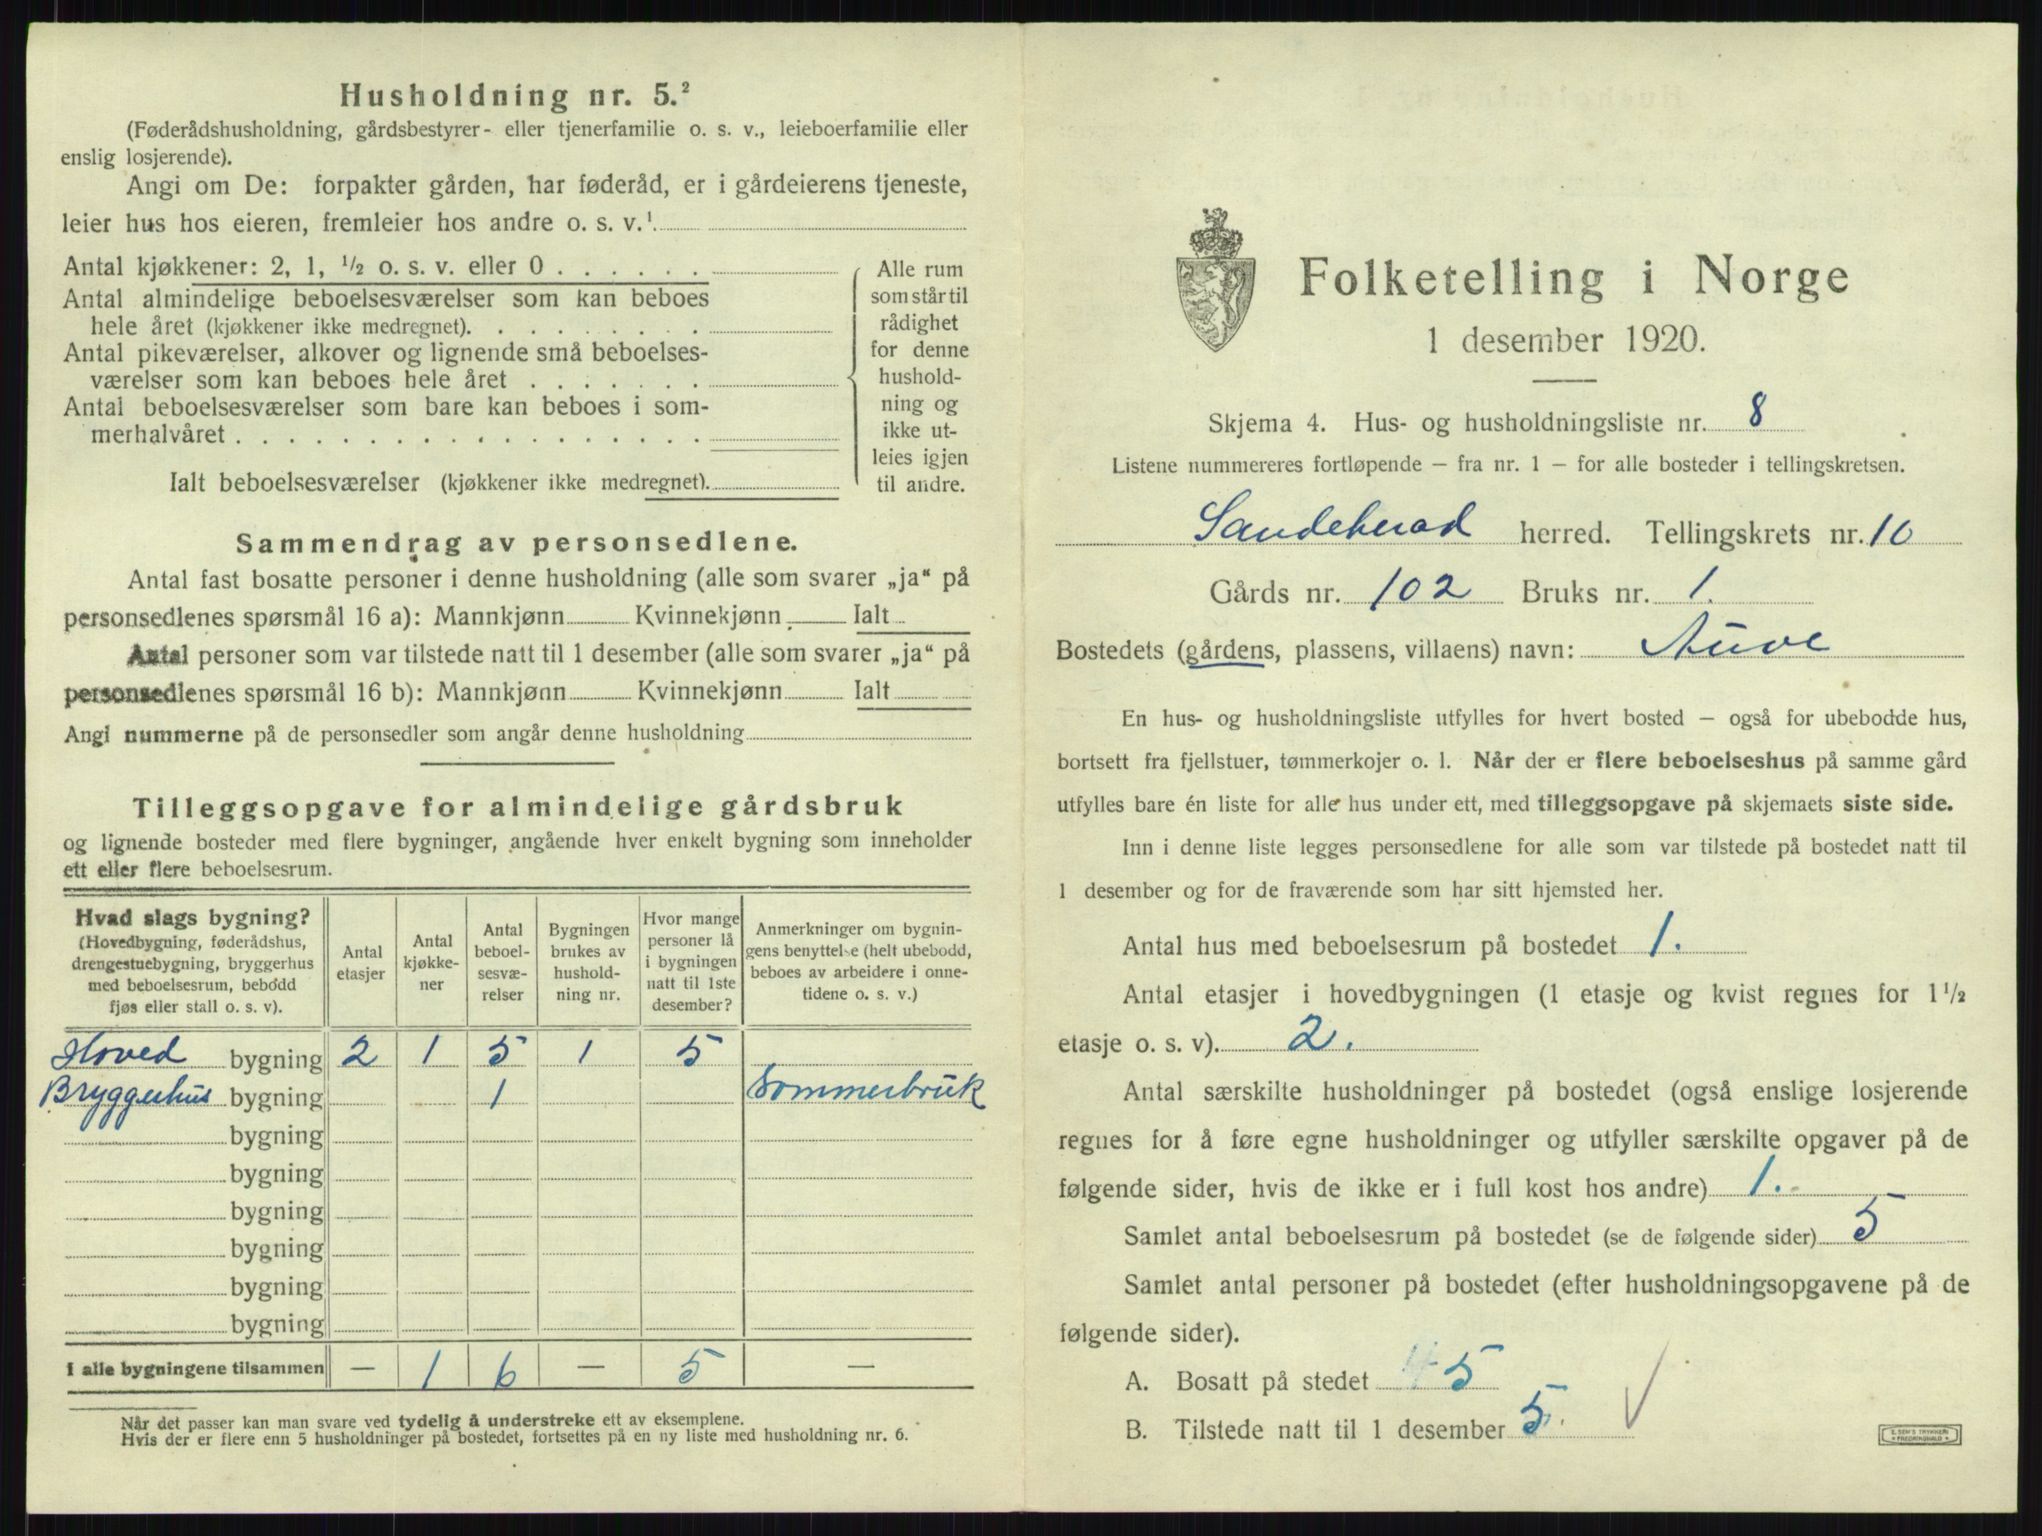 Husholdning nr. 5.²
(Føderådshusholdning, gårdsbestyrer- eller tjenerfamilie o. s. v., leieboerfamilie eller
enslig losjerende).
Angi om De: forpakter gården, har føderåd, er i gårdeierens tjeneste,
leier hus hos eieren, fremleier hos andre o. s. v.¹
Antal kjøkkener: 2, 1, ½ o. s. v. eller 0 . . . . . .
Antal almindelige beboelsesværelser som kan beboes
hele året (kjøkkener ikke medregnet). . . . . . . . .
Antal pikeværelser, alkover og lignende små beboelses-
værelser som kan beboes hele året . . . . . . .
Antal beboelsesværelser som bare kan beboes i som-
merhalvåret . . . . . . . . . . . . . . . . . .
Ialt beboelsesværelser (kjøkkener ikke medregnet).
Alle rum
som står til
rådighet
for denne
hushold-
ning og
ikke ut-
leies igjen
til andre.
Sammendrag av personsedlene.
Antal fast bosatte personer i denne husholdning (alle som svarer „ja“ på
personsedlenes spørsmål 16 a): Mannkjønn Kvinnekjønn Ialt
Antal personer som var tilstede natt til 1 desember (alle som svarer „ja“ på
personsedlenes spørsmål 16 b): Mannkjønn Kvinnekjønn Ialt
Angi nummerne på de personsedler som angår denne husholdning
Tilleggsopgave for almindelige gårdsbruk
og lignende bosteder med flere bygninger, angående hver enkelt bygning som inneholder
ett eller flere beboelsesrum.
Hvad slags bygning?
(Hovedbygning, føderådshus,
drengestuebygning, bryggerhus
med beboelsesrum, bebodd
fjøs eller stall o. s. v).
Antal
etasjer
Antal
kjøkke-
ner
Antal
beboel-
sesvæ-
relser
Bygningen
brukes av
hushold-
ning nr.
Hvor mange
personer lå
i bygningen
natt til 1ste
desember?
Anmerkninger om bygnin-
gens benyttelse (helt ubebodd,
beboes av arbeidere i onne-
tidene o. s. v.)
Hoved bygning 2 1 5 1 5
Bryggerhus bygning 1 Sommerbruk
bygning
bygning
bygning
bygning
bygning
bygning
I alle bygningene tilsammen — 1 6 — 5 —
Når det passer kan man svare ved tydelig å understreke ett av eksemplene.
Hvis der er flere enn 5 husholdninger på bostedet, fortsettes på en ny liste med husholdning nr. 6.
Folketelling i Norge
1 desember 1920.
Skjema 4. Hus- og husholdningsliste nr. 8
Listene nummereres fortløpende – fra nr. 1 – for alle bosteder i tellingskretsen.
Sandeherad herred. Tellingskrets nr. 10
Gårds nr. 102 Bruks nr. 1.
Bostedets (gårdens, plassens, villaens) navn: Auve
En hus- og husholdningsliste utfylles for hvert bosted – også for ubebodde hus,
bortsett fra fjellstuer, tømmerkojer o. l. Når der er flere beboelseshus på samme gård
utfylles bare én liste for alle hus under ett, med tilleggsopgave på skjemaets siste side.
Inn i denne liste legges personsedlene for alle som var tilstede på bostedet natt til
1 desember og for de fraværende som har sitt hjemsted her.
Antal hus med beboelsesrum på bostedet 1.
Antal etasjer i hovedbygningen (1 etasje og kvist regnes for 1½
etasje o. s. v). 2.
Antal særskilte husholdninger på bostedet (også enslige losjerende
regnes for å føre egne husholdninger og utfyller særskilte opgaver på de
følgende sider, hvis de ikke er i full kost hos andre) 1.
Samlet antal beboelsesrum på bostedet (se de følgende sider) 5
Samlet antal personer på bostedet (efter husholdningsopgavene på de
følgende sider).
A. Bosatt på stedet 5
B. Tilstede natt til 1 desember 5.
E. SEM'S TRYKKERI
FREDRIKSHALD